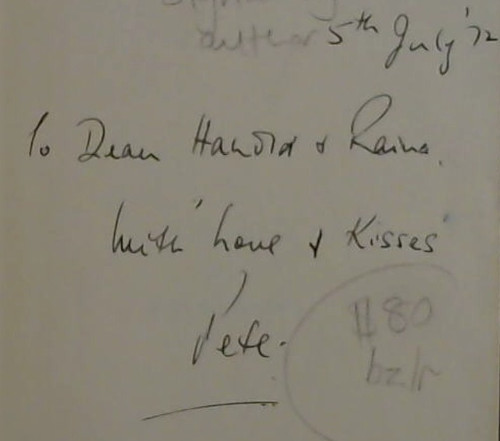 author 5th July '72
To Dear Harold & Raina.
With love & Kisses
Pete.
#80